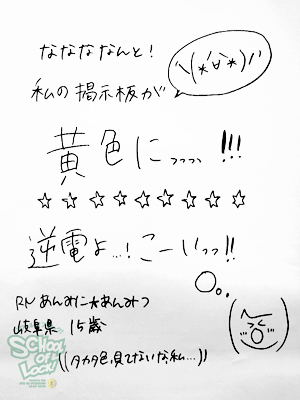 なななななんと!
ヽ(*´∀`*)ノ
私の掲示板が
黄色にっっっっ!!!
☆☆☆☆☆☆☆☆☆
逆電よ…!こーいっっ!!
RN あんみに★あんみつ
岐阜県 15歳
SCHOOL OF LOCK!